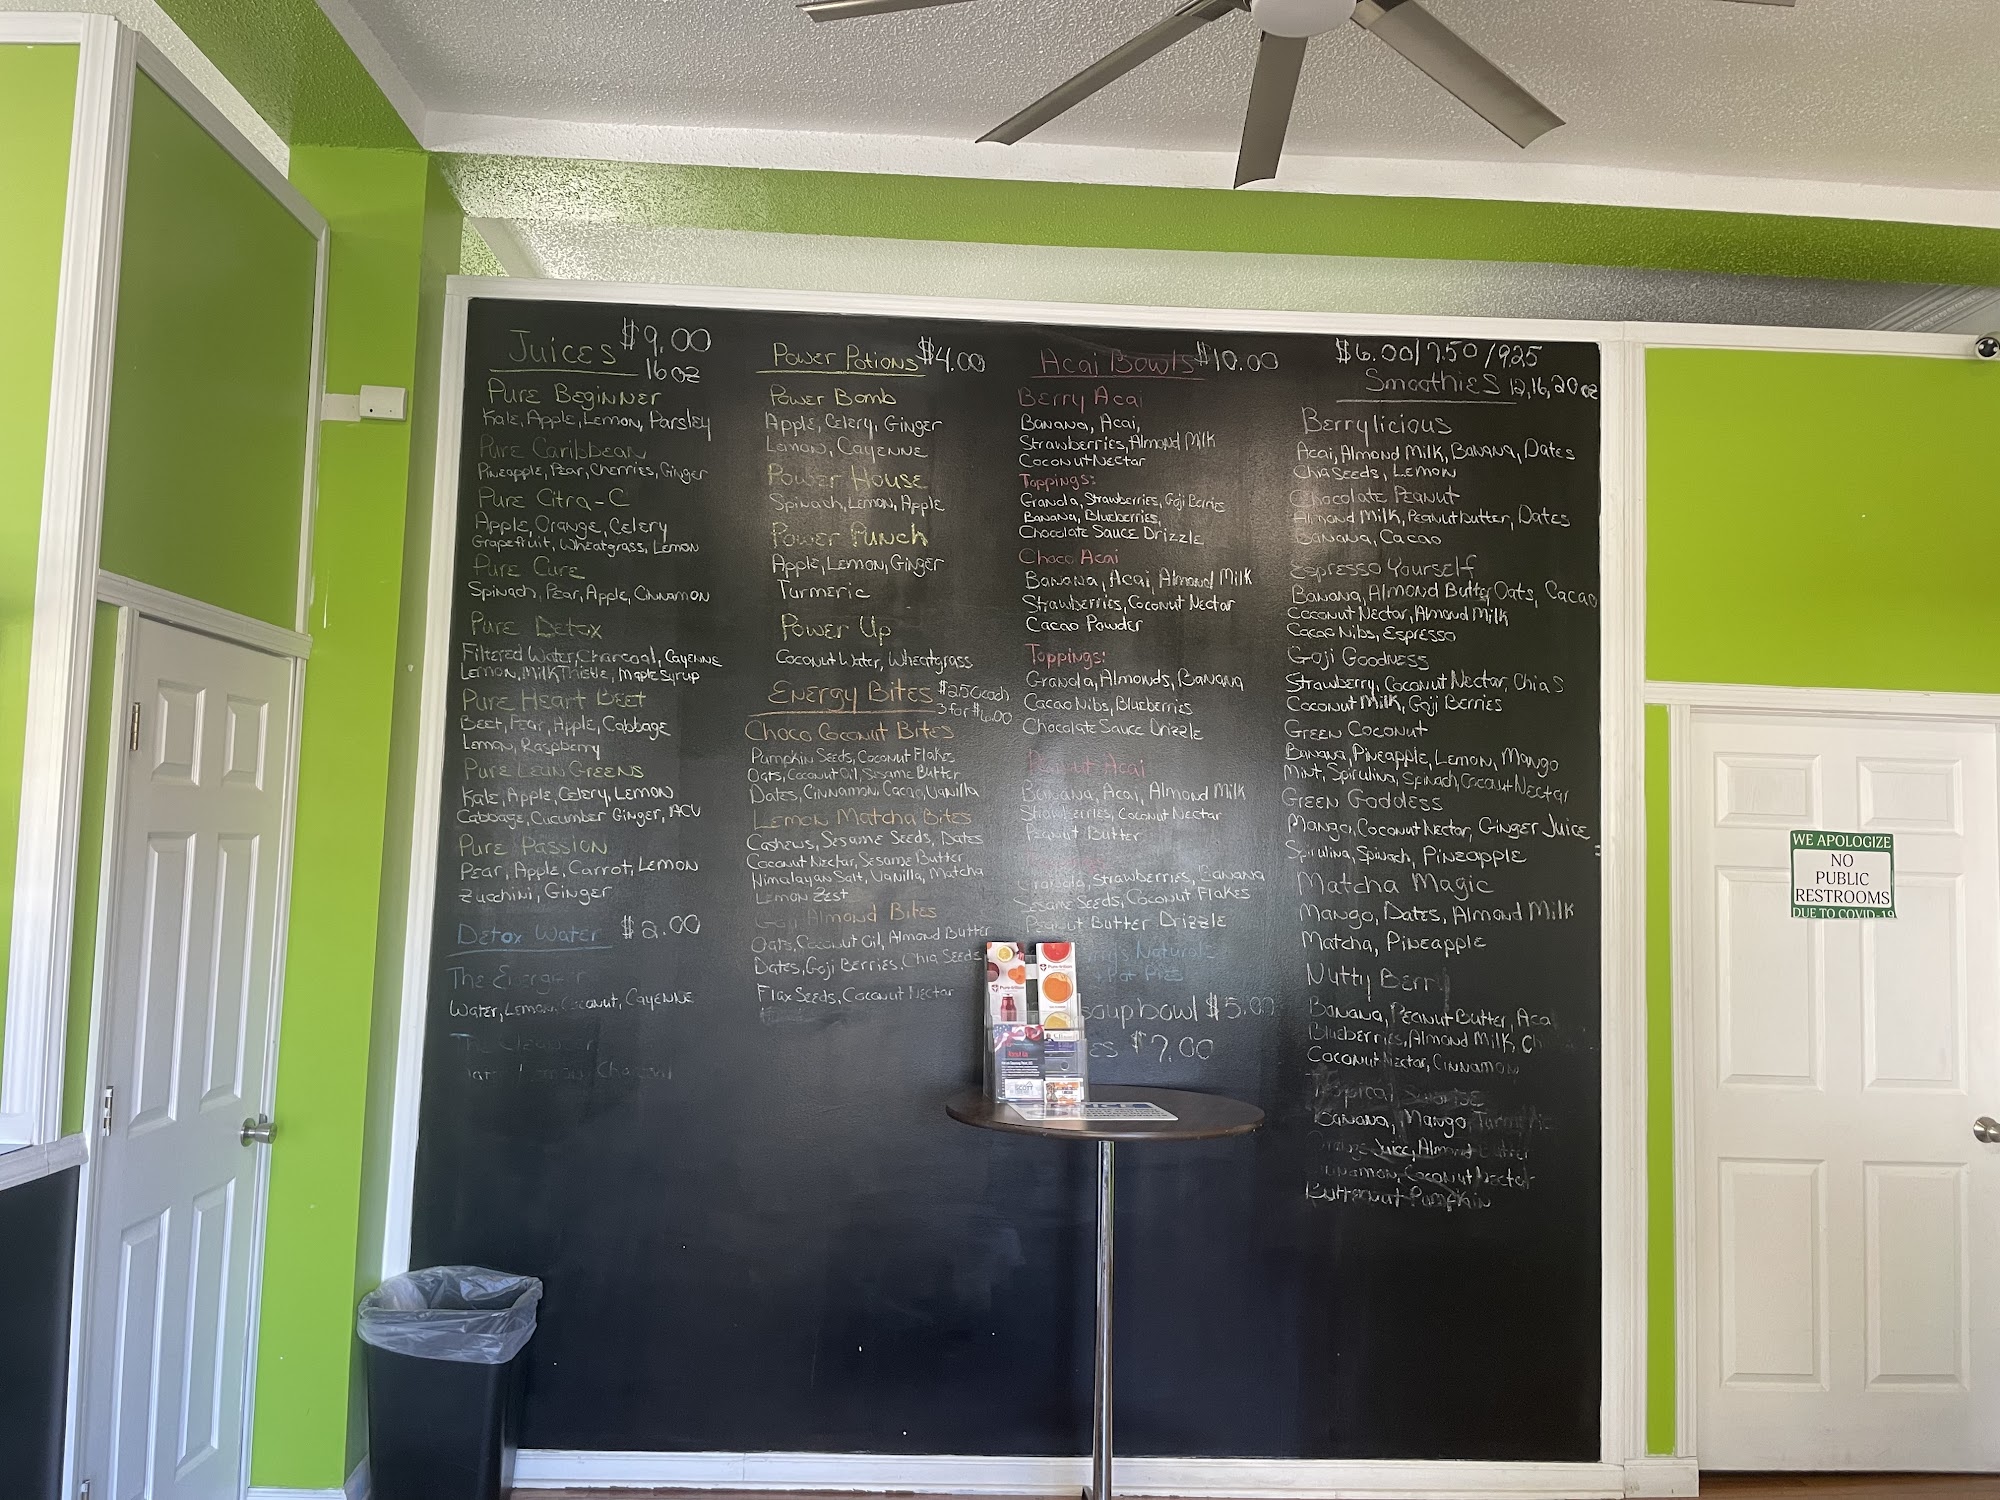 Juices $9.00
16 oz
Pure Beginner
Kale, Apple, Lemon, Parsley
Pure Caribbean
Pineapple, Pear, Cherries, Ginger
Pure Citra-C
Apple, Orange, Celery
Grapefruit, Wheatgrass, Lemon
Pure Cure
Spinach, Pear, Apple, Cinnamon
Pure Detox
Filtered Water, Charcoal, Cayenne
Lemon, Milk Thistle, Maple Syrup
Pure Heart Beet
Beet, Pear, Apple, Cabbage
Lemon, Raspberry
Pure Lean Greens
Kale, Apple, Celery, Lemon
Cabbage, Cucumber Ginger, ACV
Pure Passion
Pear, Apple, Carrot, Lemon
Zucchini, Ginger
Detox Water $2.00
The
Water, Lemon, Coconut, Cayenne
Power Potions $4.00
Power Bomb
Apple, Celery, Ginger
Lemon, Cayenne
Power House
Spinach, Lemon, Apple
Power Punch
Apple, Lemon, Ginger
Turmeric
Power Up
Coconut Water, Wheatgrass
Energy Bites $2.50 each
3 for $6.00
Choco Coconut Bites
Pumpkin Seeds, Coconut Flakes
Oats, Coconut Oil, Sesame Butter
Dates, Cinnamon, Cacao, Vanilla
Lemon Matcha Bites
Cashews, Sesame Seeds, Dates
Coconut Nectar, Sesame Butter
Himalayan Salt, Vanilla, Matcha
Lemon Zest
Goji Almond Bites
Oats, Coconut Oil, Almond Butter
Dates, Goji Berries, Chia Seeds
Flax Seeds, Coconut Nectar
Acai Bowls $10.00
Berry Acai
Banana, Acai,
Strawberries, Almond Milk
Coconut Nectar
Toppings:
Granola, Strawberries, Goji Berries
Banana, Blueberries,
Chocolate Sauce Drizzle
Choco Acai
Banana, Acai, Almond Milk
Strawberries, Coconut Nectar
Cacao Powder
Toppings:
Granola, Almonds, Banana
Cacao Nibs, Blueberries
Chocolate Sauce Drizzle
Acai
Banana, Acai, Almond Milk
Strawberries, Coconut Nectar
Peanut Butter
Granola, Strawberries, Banana
Sesame Seeds, Coconut Flakes
Peanut Butter Drizzle
Naturals
Pot Pies
soup bowl $5.00
$7.00
$6.00/7.50/9.25
Smoothies 12,16,20oz
Berrylicious
Acai, Almond Milk, Banana, Dates
Chia Seeds, Lemon
Chocolate Peanut
Almond Milk, Peanut butter, Dates
Banana, Cacao
Espresso Yourself
Banana, Almond Butter Oats, Cacao
Coconut Nectar, Almond Milk
Cacao Nibs, Espresso
Goji Goodness
Strawberry, Coconut Nectar, Chia S
Coconut Milk, Goji Berries
Green Coconut
Banana, Pineapple, Lemon, Mango
Mint, Spirulina, Spinach, Coconut Nectar
Green Goddess
Mango, Coconut Nectar, Ginger Juice
Spirulina, Spinach, Pineapple
Matcha Magic
Mango, Dates, Almond Milk
Matcha, Pineapple
Nutty Berry
Banana, Peanut Butter, Aca
Blueberries, Almond Milk, Ch
Coconut Nectar, Cinnamon
Tropical Sunrise
Banana, Mango,
Juice, Almond Butter
Cinnamon, Coconut Nectar
Butternut Pumpkin
WE APOLOGIZE
NO
PUBLIC
RESTROOMS
DUE TO COVID-19